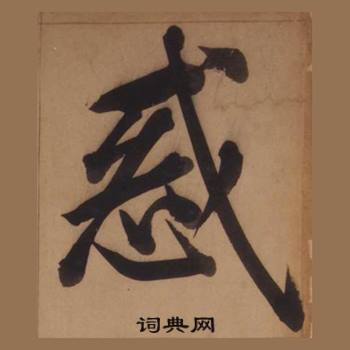 惑
词典网